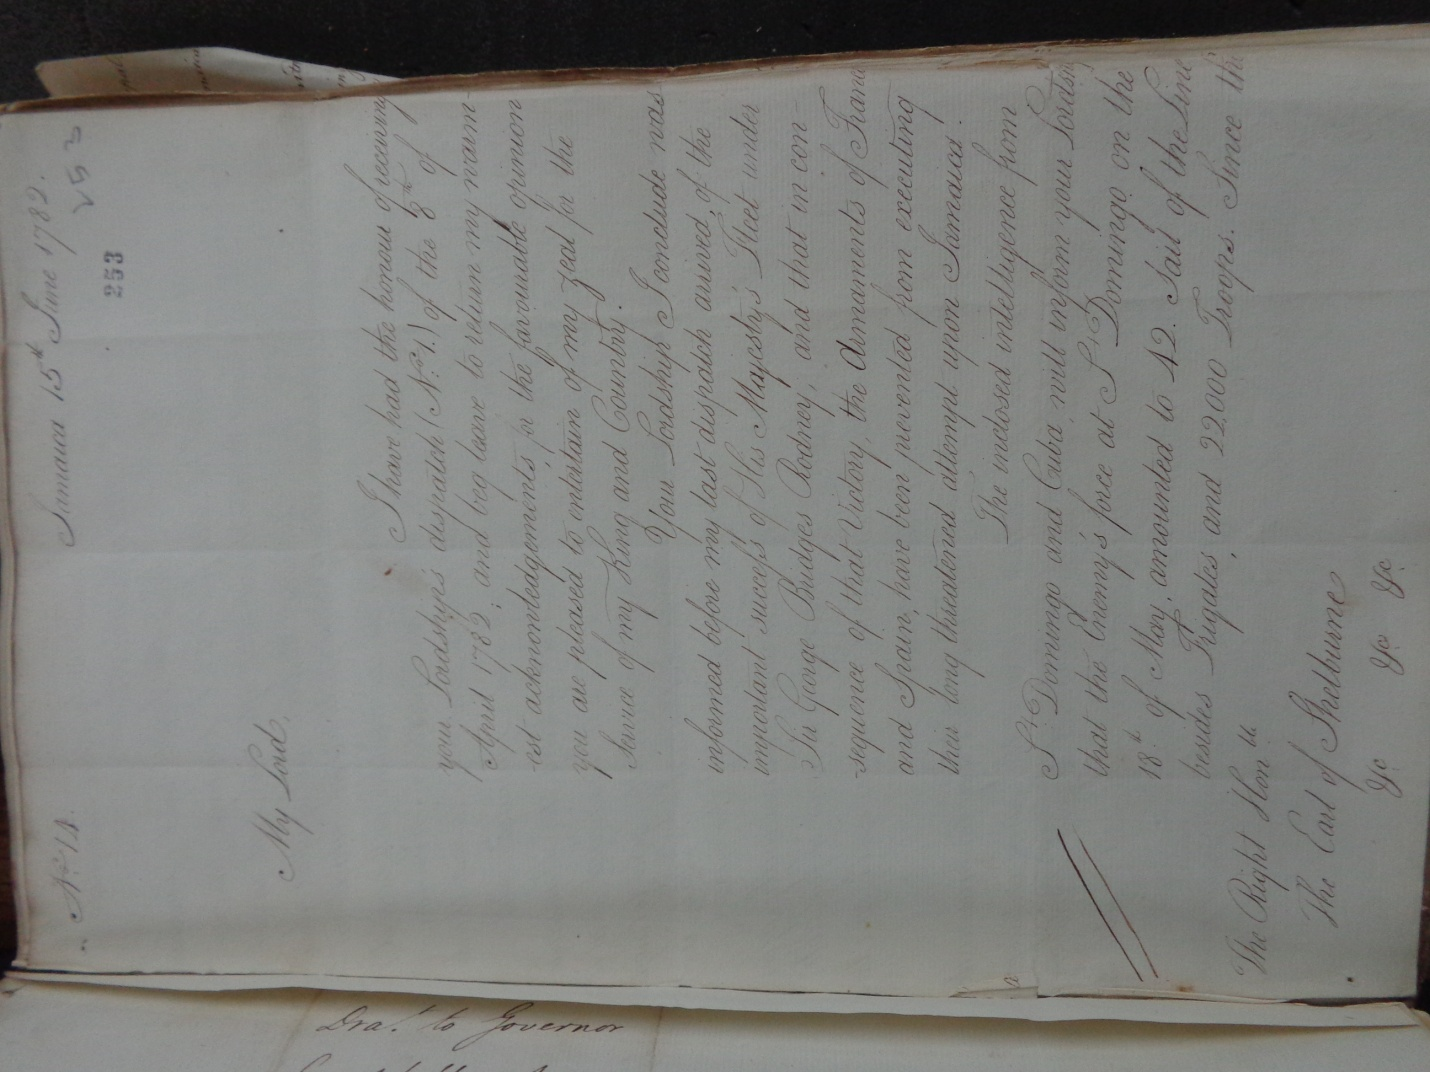 Nº. 14.
Jamaica 15th June 1782.
253
253
My Lord,
I have had the honour of receiving
your Lordship's dispatch (Nº. 1.) of the 8th of
April 1782; and beg leave to return my warm-
-est acknowledgements for the favourable opinion
you are pleased to entertain of my zeal for the
Service of my King and Country.
Your Lordship I conclude was
informed before my last dispatch arrived, of the
important success of His Majesty's Fleet under
Sir George Bridges Rodney; and that in con-
-sequence of that Victory, the Armaments of France
and Spain, have been prevented from executing
their long threatened attempt upon Jamaica.
The inclosed intelligence from
St. Domingo and Cuba, will inform your Lordship
that the Enemy's force at St. Domingo on the
18th of May, amounted to 42 Sail of the Line
besides Frigates, and 22,000 Troops. Since the
The Right Honble
The Earl of Shelburne
&c &c &c
Drat. to Governor